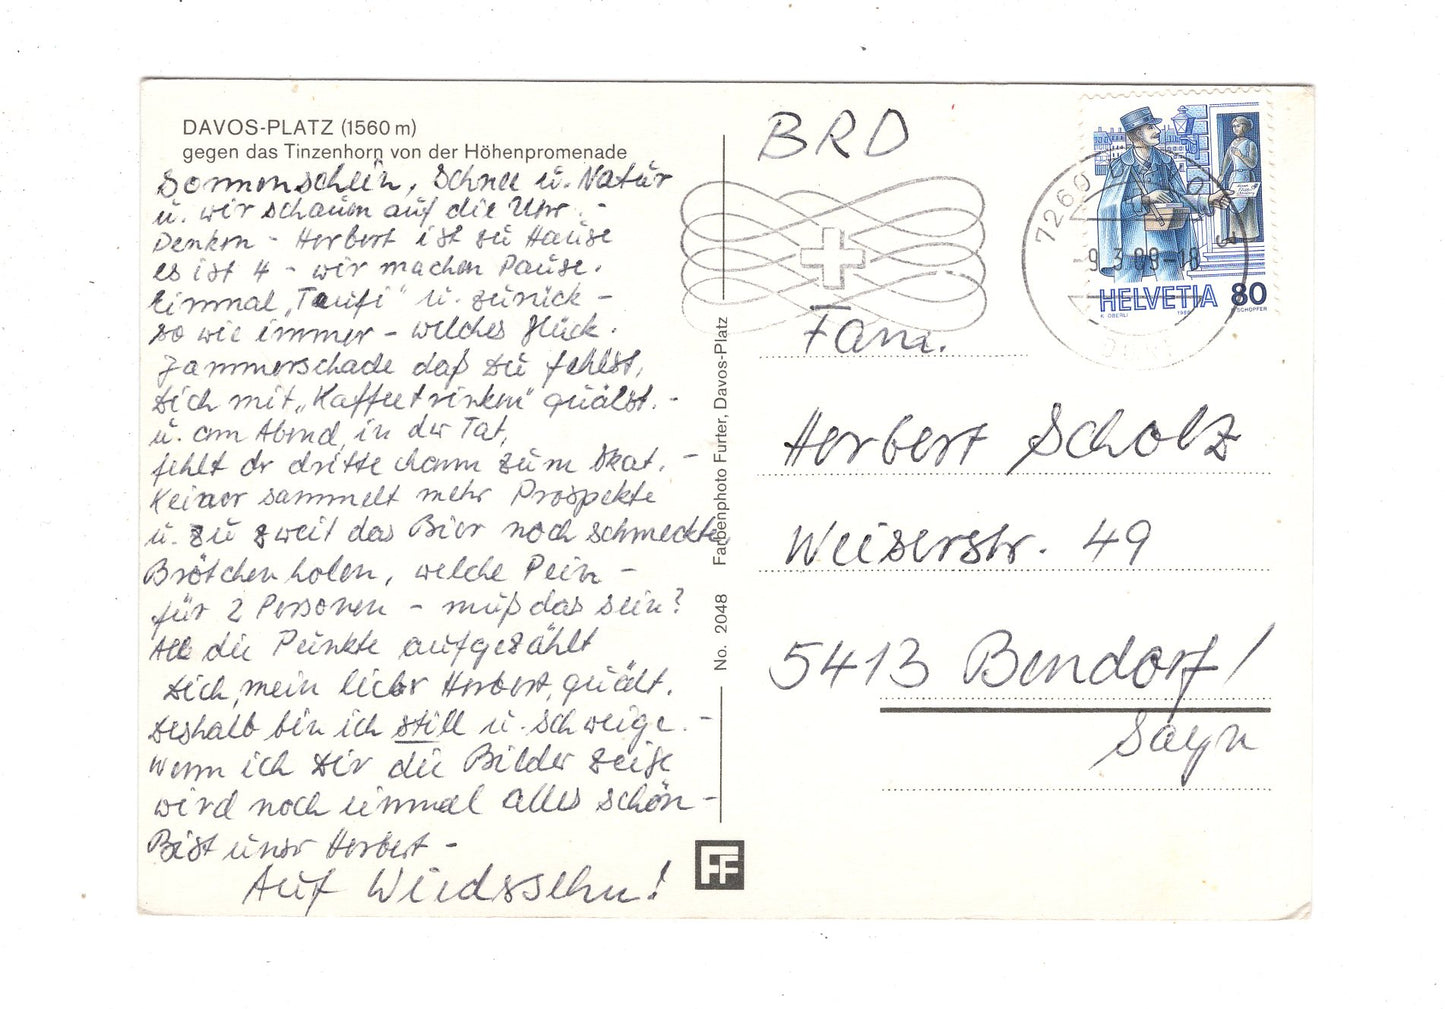 DAVOS-PLATZ (1560 m)
gegen das Tinzenhorn von der Höhenpromenade
Sonnenschein, Schnee u. Natur
u. wir schauen auf die Uhr. -
Denken - Herbert ist zu Hause
es ist 4 - wir machen Pause.
Einmal „Taufi" u. zurück -
so wie immer - welches Glück.
Jammerschade daß Du fehlst,
Dich mit „Kaffeetrinken" quälst. -
u. am Abend, in der Tat,
fehlt dr dritte dann zum Skat. -
Keiner sammelt mehr Prospekte
u. zu zweit das Bier noch schmeckte
Brötchen holen, welche Pein -
für 2 Personen - muß das sein?
All die Punkte aufgezählt
Dich, mein lieber Herbert, quält.
Deshalb bin ich still u. schweige. -
Wenn ich Dir die Bilder zeige
wird noch einmal alles schön -
Bist unser Herbert -
Auf Wiedersehn!
No. 2048 Farbenphoto Furter, Davos-Platz
FF
BRD
7260
-9.3.89-18
HELVETIA 80
K. OBERLI
SCHÖPFER
Fam.
Herbert Scholz
Weiserstr. 49
5413 Bendorf/
Sayn